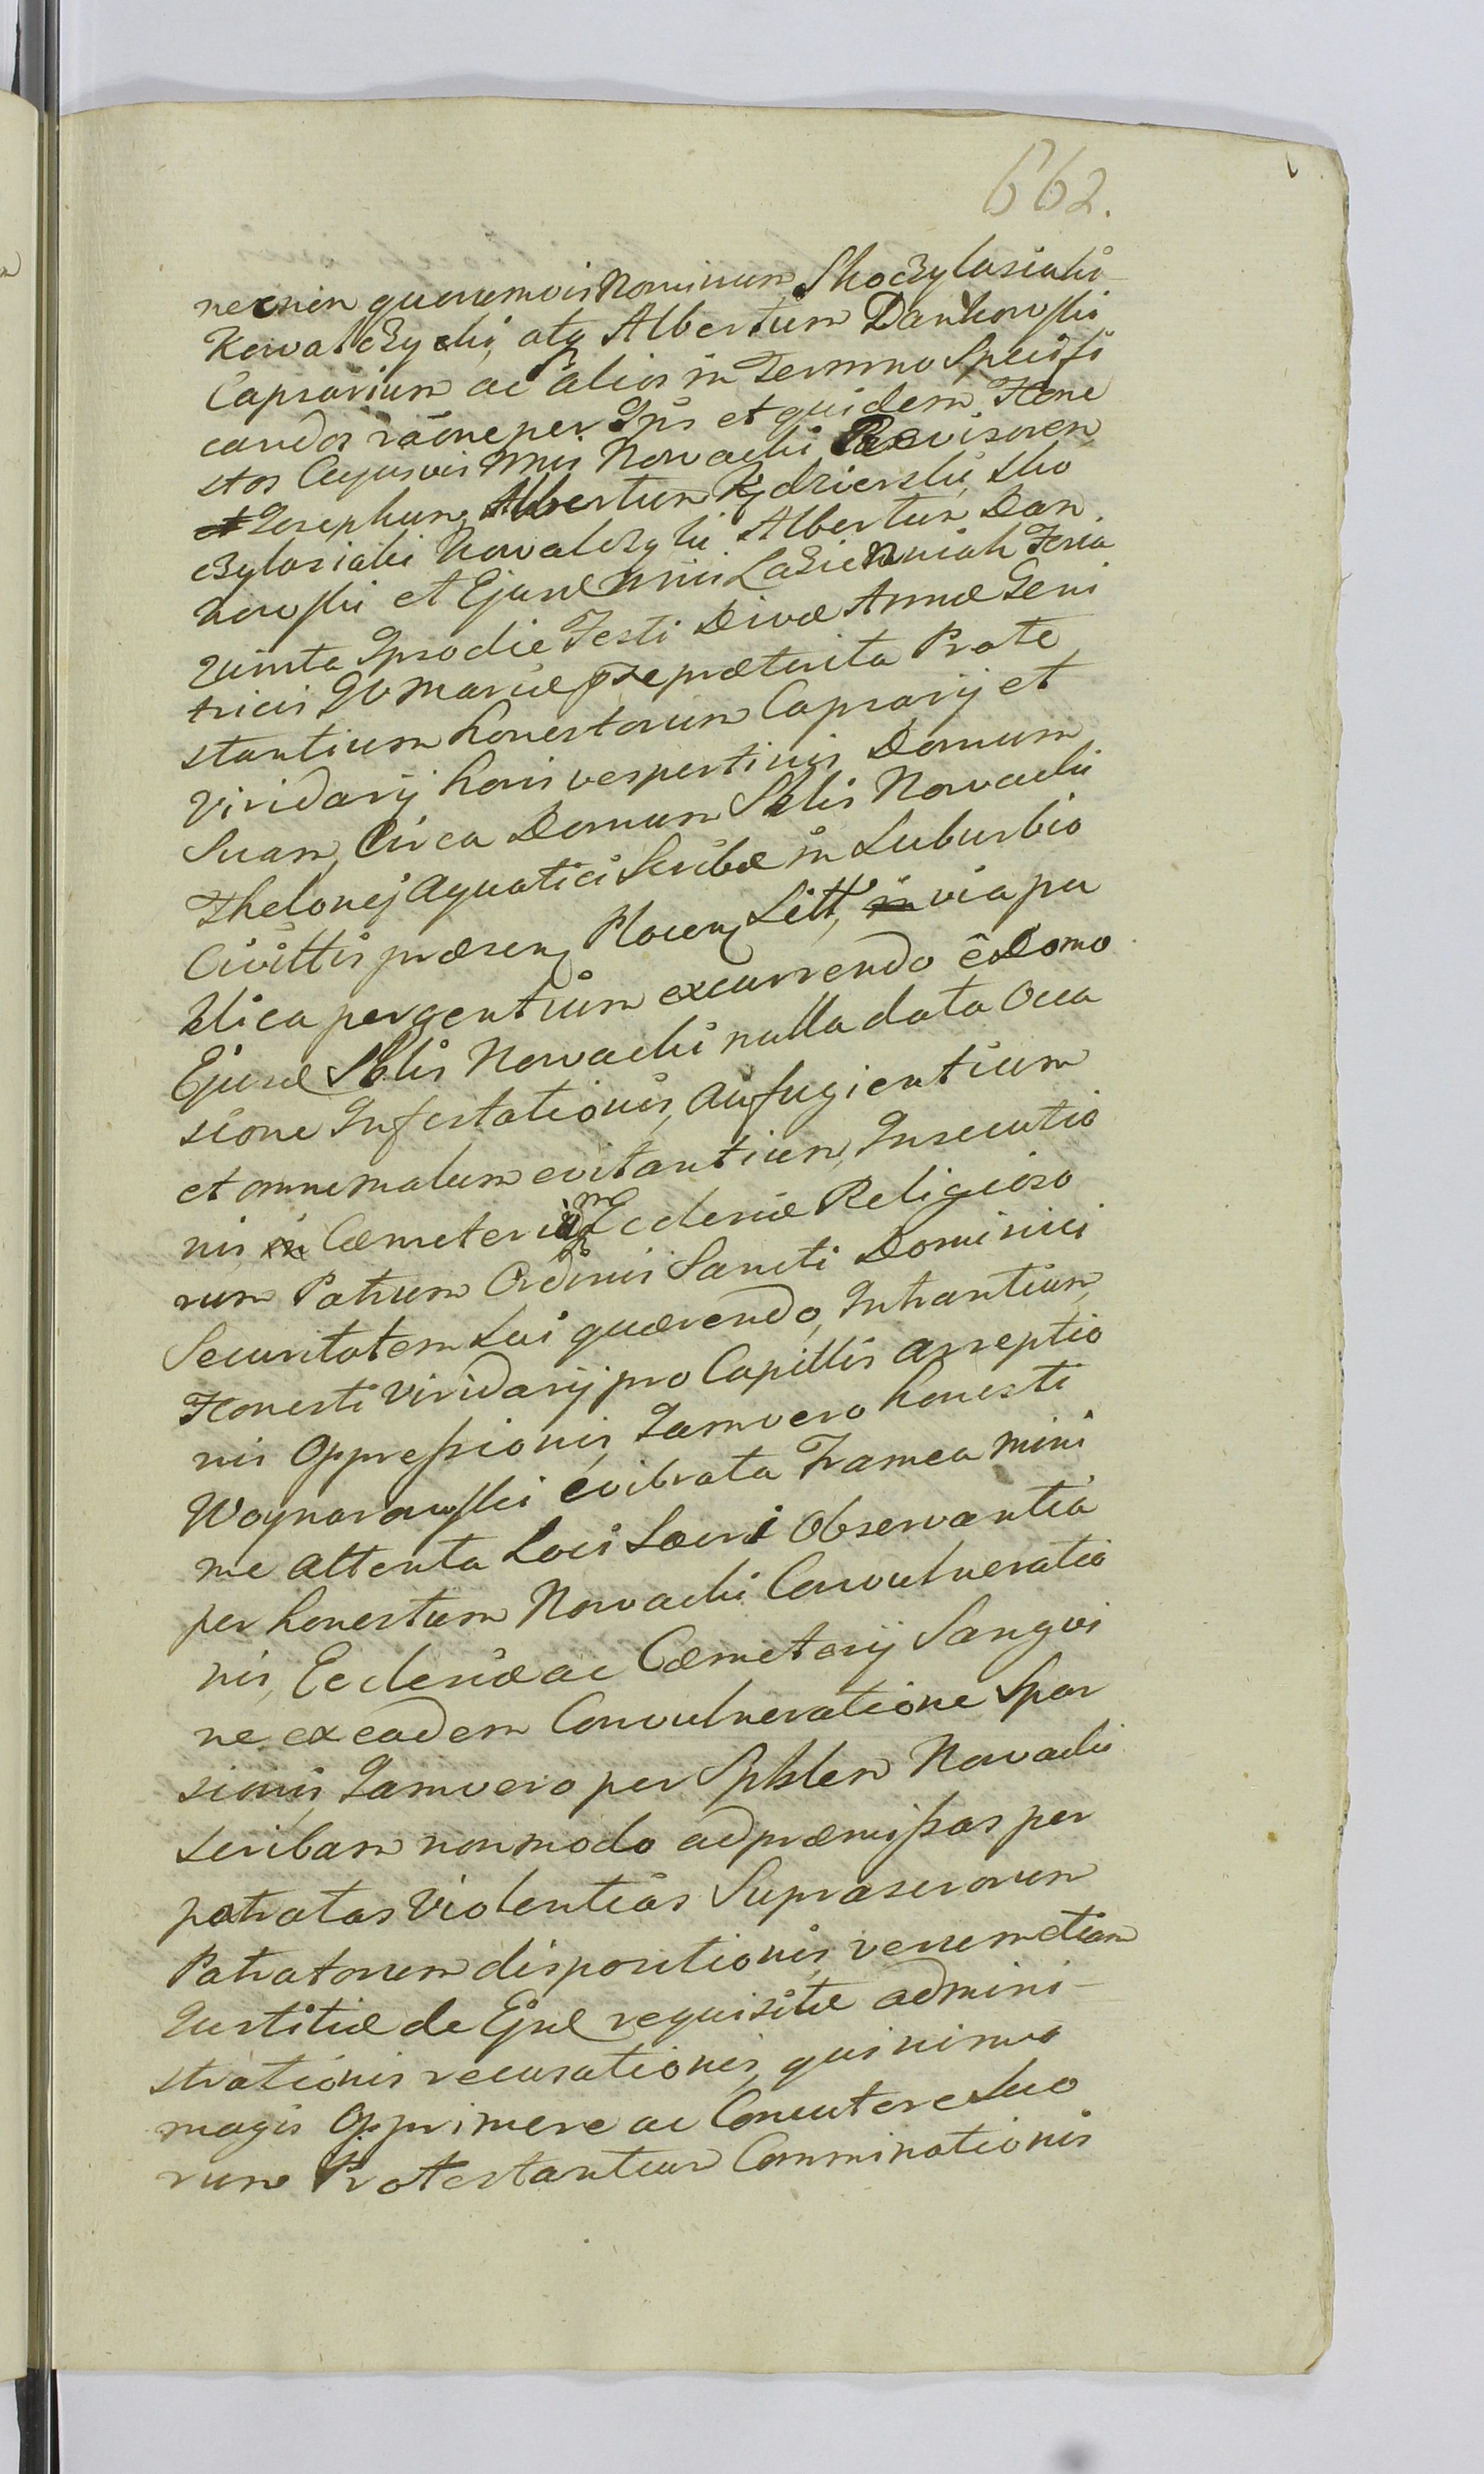 662.
necnon quonemvis Nominum Skoczylasiaki
Kowalczycki, atq Albertum Dankowski
Caprarium ac alios in Termino Specifi
candos rãone per Ipsis et quidem Hone
stos Cujusvis Nnis Nowacki Revisorem
Josephum, Albertum Kędzierski, Sko
czylasiaki Kowalczyki Albertum Dan
kowski et Ejusd Nnis Łazienniak Feria
quinta Ipso die Festi Divæ Annæ Geni
tricis BV Mariæ pxe præterita Prote
stantium honestorum Caprarij et
Viridarij horis vespertinis Domum
Suam, Circa Domum Sblis Nowacki
Thelonej Aquatici Scribæ in Suburbio
Civittis præsen Plocen Sitt, via pu
blica pergentium excurrendo è Domo
Ejusd Sblis Nowacki nulla data Occa
sione Infestationis, aufugientium
et omne malum evitantium, Insecutio
nis, Cæmeterium Ecclesiæ Religioso
rum Patrum Ordinis Sancti Dominici
Securitatem Sui quærendo, Intrantium,
Honesti Viridarij pro Capillis arreptio
nis Oppressionis, Jamvero honesti
Woynarowski evibrata Framea mini
me attenta Loci Sacri Observantia
per honestum Nowacki Convulneratio
nis, Ecclesiæ ac Cæmeterij Sangvi
ne ex eadem Convulneratione Spar
sionis, Jamvero per Spblem Nowacki
Scribam nonmodo ad præmissas per
patratas Violentias Suprascrorum
Patratorum dispositionis, verum etiam
Justitiæ de Ejsd requisitæ admini-
strationis recusationis, quinimo
magis Opprimere ac Concutere Suo
rum Protestantium Comminationis